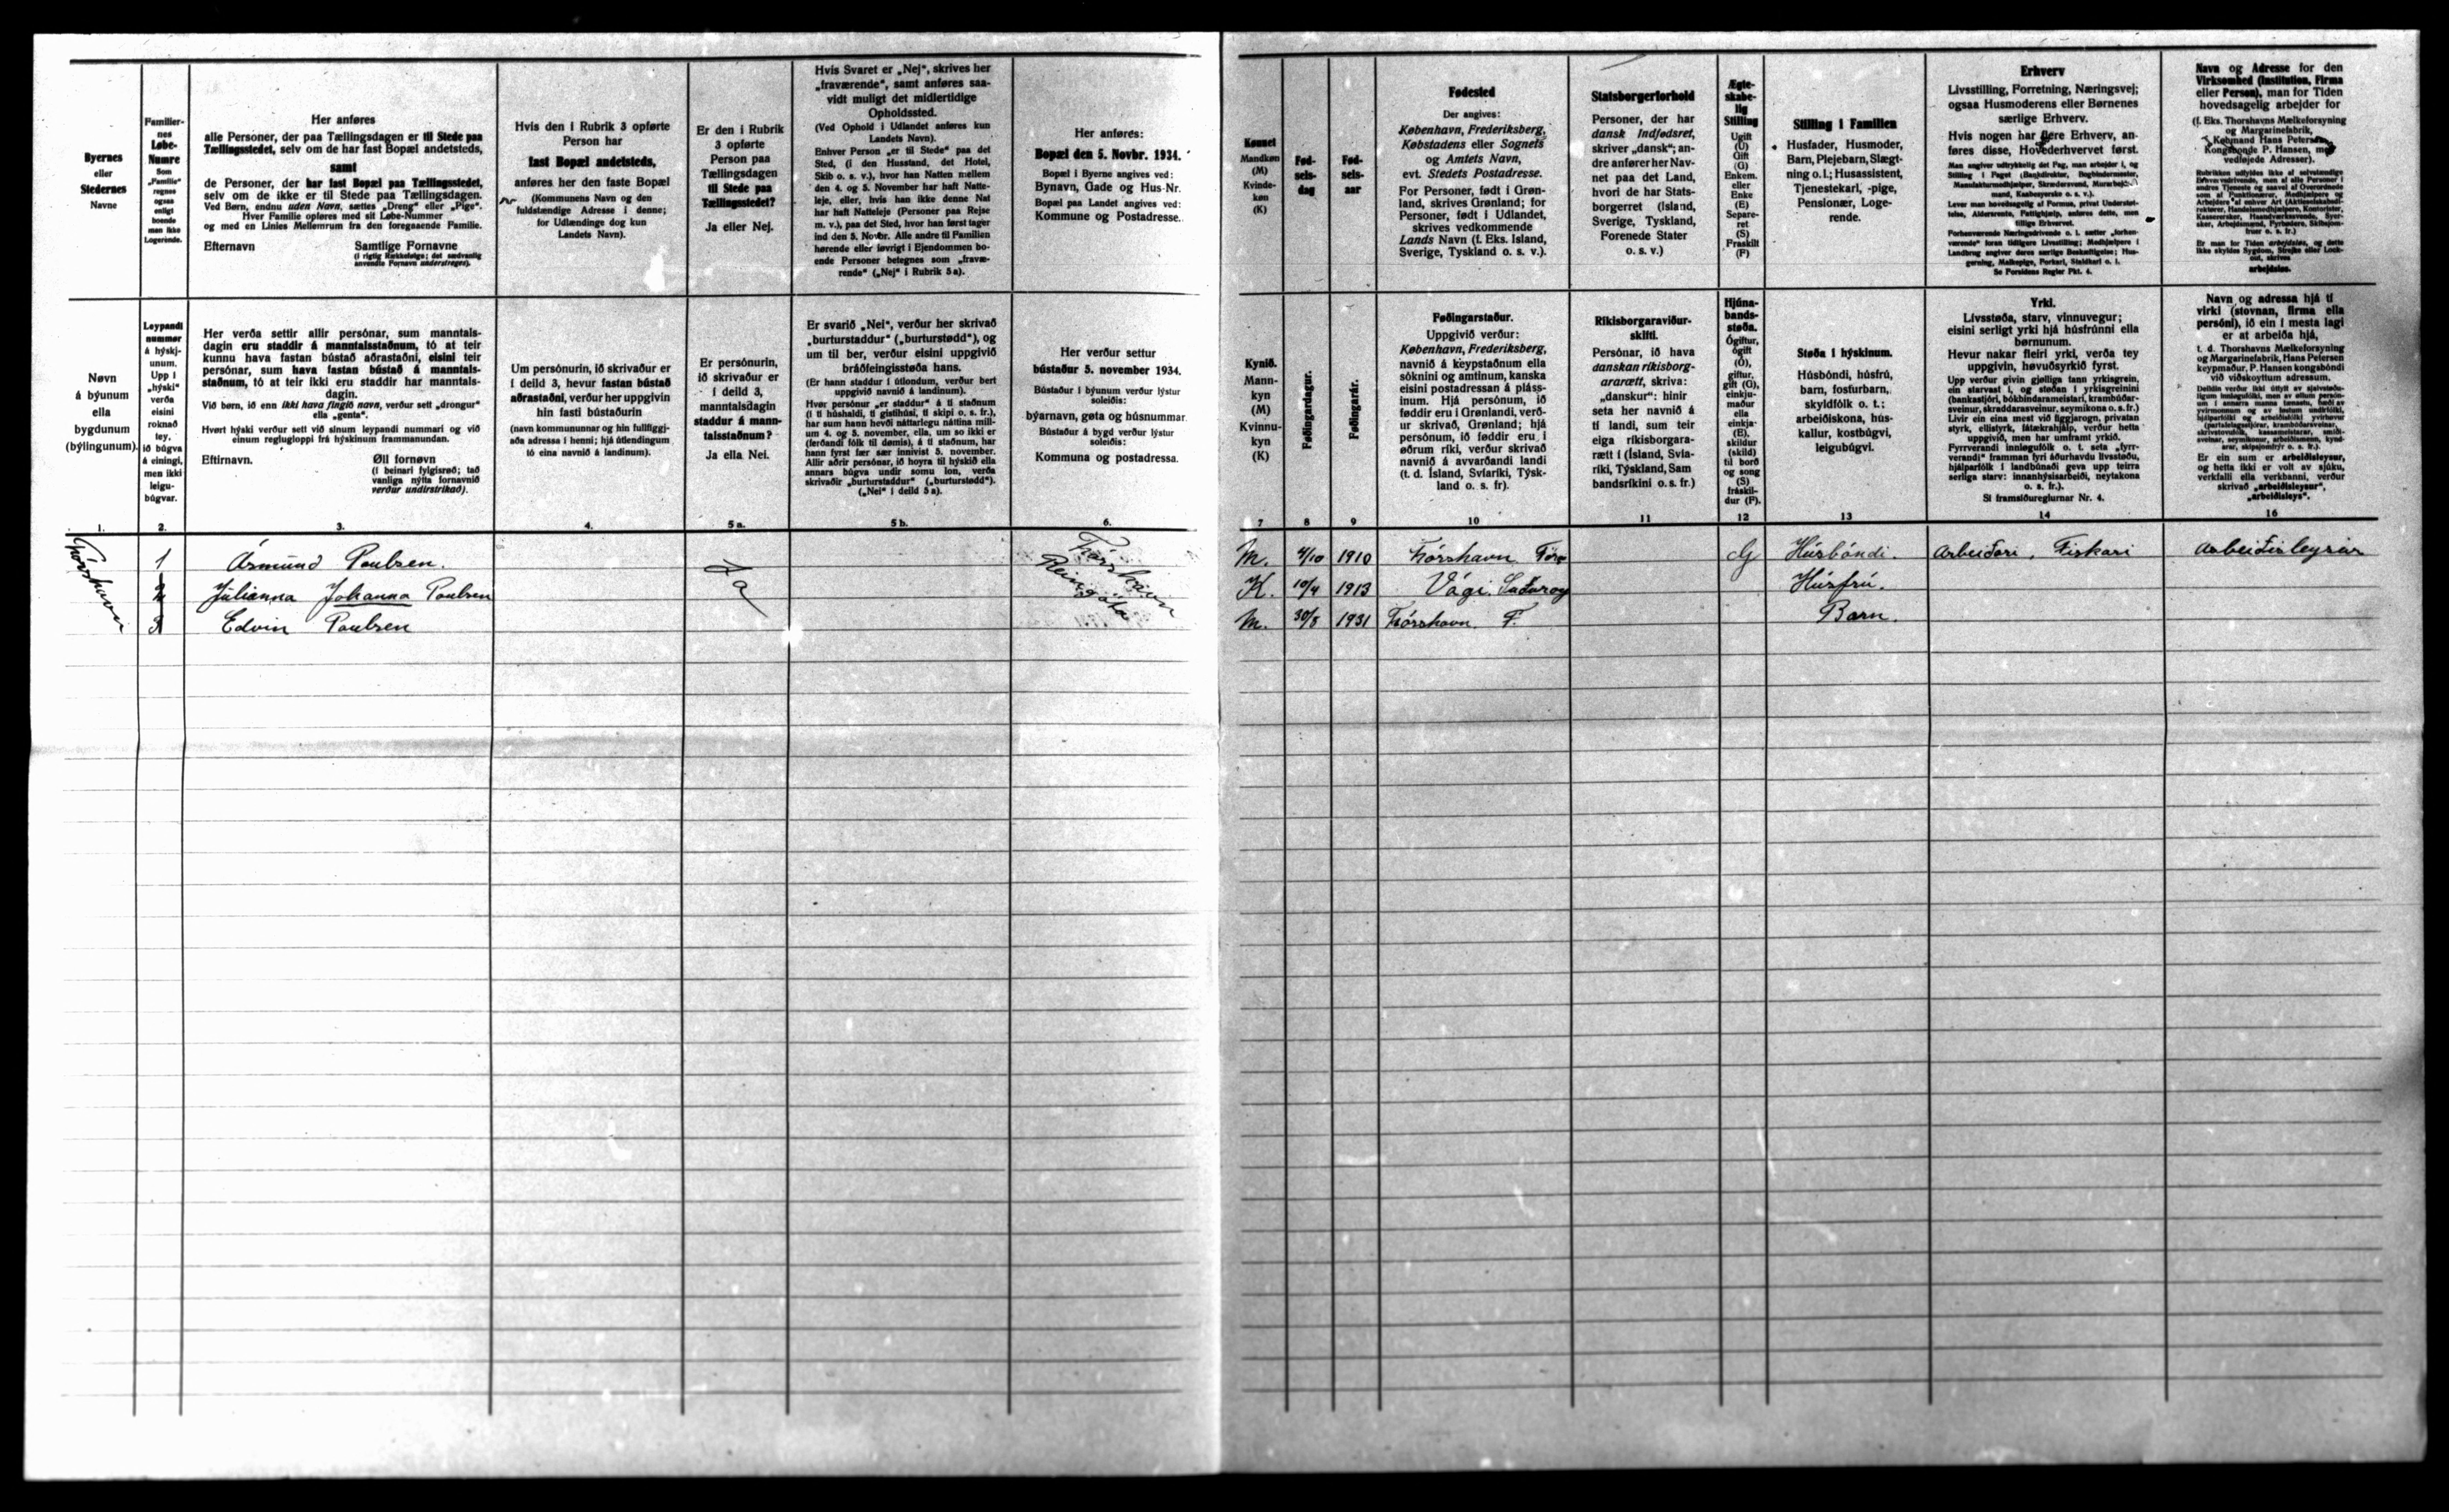 Byernes
eller
Stedernes
Navne
Familier-
nes
Løbe-
Numre
Som
„Familie“
regnes
ogsaa
enligt
boende
man ikke
Logerende.
Her anføres
alle Personer, der paa Tællingsdagen er til Stede paa
Tællingsstedet, selv om de har fast Bopæl andetsteds,
samt
de Personer, der har fast Bopæl paa Tællingsstedet,
selv om de ikke er til Stede paa Tællingsdagen.
Ved Børn, endnu uden Navn, sættes „Dreng“ eller „Pige“.
Hver Familie opføres med sit Løbe-Nummer
og med en Linies Mellemrum fra den foregaaende Familie.
Efternavn Samtlige Fornavne
(i rigtig Rækkefølge; det sædvanlig
anvendte Fornavn understreges).
Hvis den i Rubrik 3 opførte
Person har
fast Bopæl andetsteds,
anføres her den faste Bopæl
(Kommunens Navn og den
fuldstændige Adresse i denne;
for Udlændinge dog kun
Landets Navn).
Er den i Rubrik
3 opførte
Person paa
Tællingsdagen
til Stede paa
Tællingsstedet?
Ja eller Nej.
Hvis Svaret er „Nej“, skrives her
„fraværende“, samt anføres saa-
vidt muligt det midlertidige
Opholdssted.
(Ved Ophold i Udlandet anføres kun
Landets Navn).
Enhver Person „er til Stede“ paa det
Sted, (i den Husstand, det Hotel,
Skib o. s. v.), hvor han Natten mellem
den 4. og 5. November har haft Natte-
leje, eller, hvis han ikke denne Nat
har haft Natteleje (Personer paa Rejse
m. v.), paa det Sted, hvor han først tager
ind den 5. Novbr. Alle andre til Familien
hørende eller iøvrigt i Ejendommen bo-
ende Personer betegnes som „fravæ-
rende“ („Nej“ i Rubrik 5a).
Her anføres:
Bopæl den 5. Novbr. 1934.
Bopæl i Byerne angives ved:
Bynavn, Gade og Hus-Nr.
Bopæl paa Landet angives ved:
Kommune og Postadresse.
Kønnet
Mandkøn
(M)
Kvinde-
køn
(K)
Fød-
sels-
dag
Fød-
sels-
aar
Fødested
Der angives:
København, Frederiksberg,
Købstadens eller Sognets
og Amtets Navn,
evt. Stedets Postadresse.
For Personer, født i Grøn-
land, skrives Grønland; for
Personer, født i Udlandet,
skrives vedkommende
Lands Navn (f. Eks. Island,
Sverige, Tyskland o. s. v.).
Statsborgerforhold
Personer, der har
dansk Indfødsret,
skriver „dansk“; an-
dre anfører her Nav-
net paa det Land,
hvori de har Stats-
borgerret (Island,
Sverige, Tyskland,
Forenede Stater
o. s. v.)
Ægte-
skabe-
lig
Stilling
Ugift
(U)
Gift
(G)
Enkem.
eller
Enke
(E)
Separe-
ret
(S)
Fraskilt
(F)
Stilling i Familien
Husfader, Husmoder,
Barn, Plejebarn, Slægt-
ning o. l.; Husassistent,
Tjenestekarl, -pige,
Pensionær, Loge-
rende.
Erhverv
Livsstilling, Forretning, Næringsvej;
ogsaa Husmoderens eller Børnenes
særlige Erhverv.
Hvis nogen har flere Erhverv, an-
føres disse, Hovederhvervet først.
Man angiver udtrykkelig det Fag, man arbejder i, og
Stilling i Faget (Bankdirektør, Bogbindermester,
Manufakturmedhjælper, Skræddersvend, Murarbejds-
mand, Kaabesyerske o. s. v.).
Lever man hovedsagelig af Formue, privat Understøt-
telse, Aldersrente, Fattighjælp, anføres dette, men
tillige Erhvervet.
Forhenværende Næringsdrivende o. l. sætter „forhen-
værende“ foran tidligere Livsstilling; Medhjælpere i
Landbrug angiver deres særlige Beskæftigelse; Hus-
gerning, Malkepige, Forkarl, Staldkarl o. l.
Se Forsidens Regler Pkt. 4.
Navn og Adresse for den
Virksomhed (Institution, Firma
eller Person), man for Tiden
hovedsagelig arbejder for
(f. Eks. Thorshavns Mælkeforsyning
og Margarinefabrik,
Købmand Hans Petersen,
Kongsbonde P. Hansen, med
vedføjede Adresser).
Rubrikken udfyldes ikke af selvstændige
Erhvervsdrivende, men af alle Personer i
andres Tjeneste og saavel af Overordnede
som af Funktionærer, Medhjælpere og
Arbejdere af enhver Art
Er man for Tiden arbejdsløs, og dette
ikke skyldes Sygdom, Strejke eller Lock-
out, skrives
arbejdsløs.
Nøvn
á býunum
ella
bygdunum
(býlingunum).
Leypandi
nummer
á hýskj-
unum.
Upp í
„hýski“
verða
eisini
roknað
tey,
ið búgva
á einingi,
men ikki
leigu-
búgvar.
Her verða settir allir persónar, sum manntals-
dagin eru staddir á manntalsstaðnum, tó at teir
kunnu hava fastan bústað aðrastaðni, eisini teir
persónar, sum hava fastan bústað á manntals-
staðnum, tó at teir ikki eru staddir har manntals-
dagin.
Við børn, ið enn ikki hava fingið navn, verður sett „drongur“
ella „genta“.
Hvørt hýski verður sett við sínum leypandi nummari og við
einum reglugloppi frá hýskinum frammanundan.
Eftirnavn. Øll fornøvn
(í beinari fylgisrøð; tað
vanliga nýtta fornavnið
verður undirstrikað).
Um persónurin, ið skrivaður er
í deild 3, hevur fastan bústað
aðrastaðni, verður her uppgivin
hin fasti bústaðurin
(navn kommununnar og hin fullfíggj-
aða adressa í henni; hjá útlendingum
tó eina navnið á landinum).
Er persónurin,
ið skrivaður er
í deild 3,
manntalsdagin
staddur á mann-
talsstaðnum?
Ja ella Nei.
Er svarið „Nei“, verður her skrivað
„burturstaddur“ („burturstødd“), og
um til ber, verður eisini uppgivið
bráðfeingisstøða hans.
(Er hann staddur í útlondum, verður bert
uppgivið navnið á landinum).
Hvør persónur „er staddur“ á tí staðnum
(í tí húshaldi, tí gistihúsi, tí skipi o. s. fr.),
har sum hann hevði náttarlegu náttina mill-
um 4. og 5. november, ella, um so ikki er
(ferðandi fólk til dømis), á tí staðnum, har
hann fyrst fær sær innivist 5. november.
Allir aðrir persónar, ið hoyra til hýskið ella
annars búgva undir somu lon, verða
skrivaðir „burturstaddur“ („burturstødd“).
(„Nei“ í deild 5a).
Her verður settur
bústaður 5. november 1934.
Bústaður í býunum verður lýstur
soleiðis:
býarnavn, gøta og húsnummar.
Bústaður á bygd verður lýstur
soleiðis:
Kommuna og postadressa.
Kynið.
Mann-
kyn
(M)
Kvinnu-
kyn
(K)
Føðingardagur.
Føðingarár.
Føðingarstaður.
Uppgivið verður:
København, Frederiksberg,
navnið á keypstaðnum ella
sóknini og amtinum, kanska
eisini postadressan á pláss-
inum. Hjá persónum, ið
føddir eru í Grønlandi, verð-
ur skrivað, Grønland; hjá
persónum, ið føddir eru í
øðrum ríki, verður skrivað
navnið á avvarðandi landi
(t. d. Ísland, Svíaríki, Týsk-
land o. s. fr).
Ríkisborgaraviður-
skifti.
Persónar, ið hava
danskan ríkisborg-
ararætt, skriva:
„danskur“: hinir
seta her navnið á
tí landi, sum teir
eiga ríkisborgara-
rætt í (Ísland, Svía-
ríki, Týskland, Sam
bandsríkini o. s. fr.)
Hjúna-
bands-
støða.
Ógiftur,
ógift
(Ó),
giftur,
gift (G),
einkju-
maður
ella
einkja-
(E),
skildur
(skild)
til borð
og song
(S)
fráskil-
dur (F).
Støða í hýskinum.
Húsbóndi, húsfrú,
barn, fosturbarn,
skyldfólk o. t.;
arbeiðiskona, hús-
kallur, kostbúgvi,
leigubúgvi.
Yrki.
Lívsstøða, starv, vinnuvegur;
eisini serligt yrki hjá húsfrúnni ella
børnunum.
Hevur nakar fleiri yrki, verða tey
uppgivin, høvuðsyrkið fyrst.
Upp verður givin gjølliga tann yrkisgrein,
ein starvast í, og støðan í yrkisgreinini
(bankastjóri, bókbindarameistari, krambúðar-
sveinur, skraddarasveinur, seymikona o. s. fr.)
Livir ein eina mest við liggjarogn, privatan
styrk, ellistyrk, fátækrahjálp, verður hetta
uppgivið, men har umframt yrkið.
Fyrrverandi innløgufólk o. t. seta „fyrr-
verandi“ framman fyri áðurhavdu lívsstøðu,
hjálparfólk í landbúnaði geva upp teirra
serliga starv: innanhýsisarbeiði, neytakona
o. s. fr.).
Sí framsíðureglurnar Nr. 4.
Navn og adressa hjá tí
virki (stovnan, firma ella
persóni), ið ein í mesta lagi
er at arbeiða hjá,
t. d. Thorshavns Mælkeforsyning
og Margarinefabrik, Hans Petersen
keypmaður, P. Hansen kongsbóndi
við viðskoyttum adressum.
Er ein sum er arbeiðisleysur,
og hetta ikki er volt av sjúku,
verkfalli ella verkbanni, verður
skrivað „arbeiðisleysur“,
„arbeiðisleys“.
1. 2. 3. 4. 5 a. 5 b. 6. 7 8 9 10 11 12 13 14 16
Tórshavn 1 Ásmund Poulsen. Ja Tórshavn M. 4/10 1910 Tórshavn Før. G Húsbóndi. Arbeiðari, Fiskari Arbeiðisleysur
2 Julianna Johanna Poulsen Reinagøta K. 10/4 1913 Vági, Suðuroy Húsfrú.
3 Edvin Poulsen M. 30/8 1931 Tórshavn F. Barn.